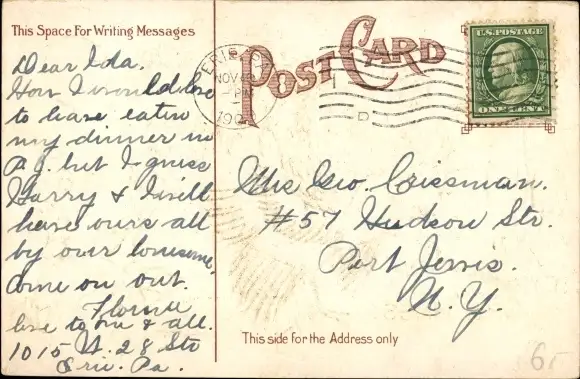 This Space For Writing Messages
POST CARD
ERIE, PA.
NOV
PM
U.S. POSTAGE
ONE CENT
D
Dear Ida.
How I would love
to have eaten
my dinner in
P.J. but I guess
Harry & I will
have ours all
by our lonesome,
Come on out.
Florence
love to one & all.
1015 W. 28 Str
Erie. Pa.
Mrs Geo. Crissman.
#57 Hudson Str.
Port Jervis.
N.Y.
This side for the Address only